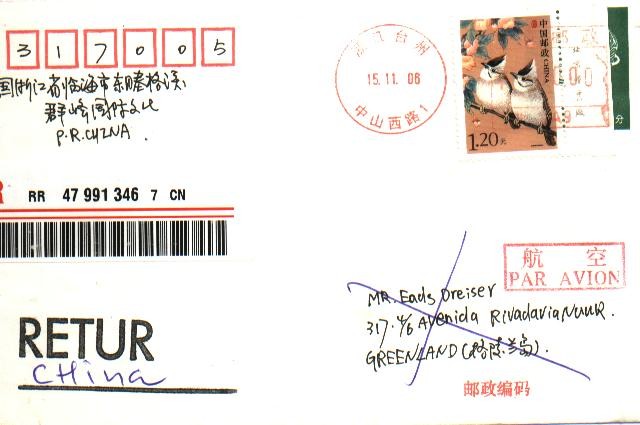 317005
国浙江省临海市东塍格溪
群峰园林文化
P.R.CHINA.
RR 47 991 346 7 CN
RETUR
China
浙江台州
15.11.06
中山西路1
中国邮政 CHINA
1.20元
分
航 空
PAR AVION
MR. Eads Dreiser
317. 4/6 Avenida Rivadavia NUUK.
GREENLAND(格陵兰岛).
邮政编码